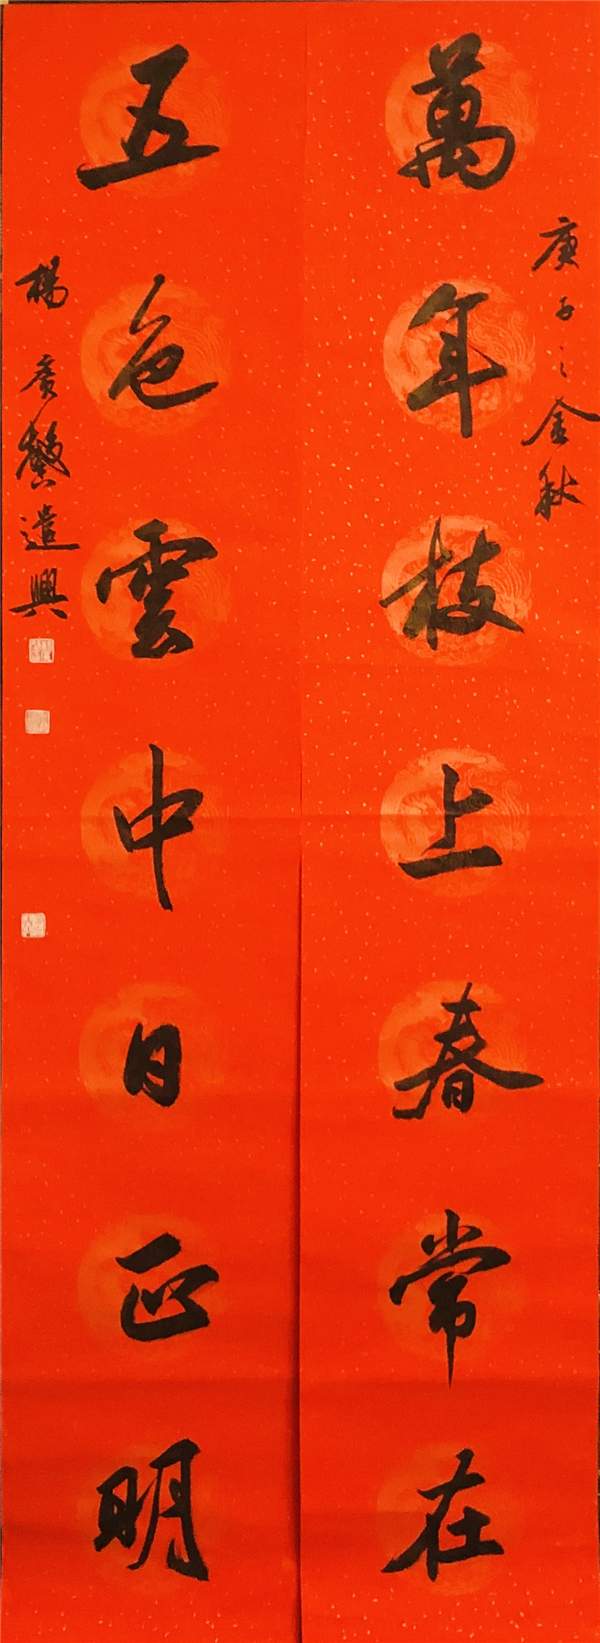 庚子之金秋
萬年枝上春常在
五色雲中日正明
楊 遣興